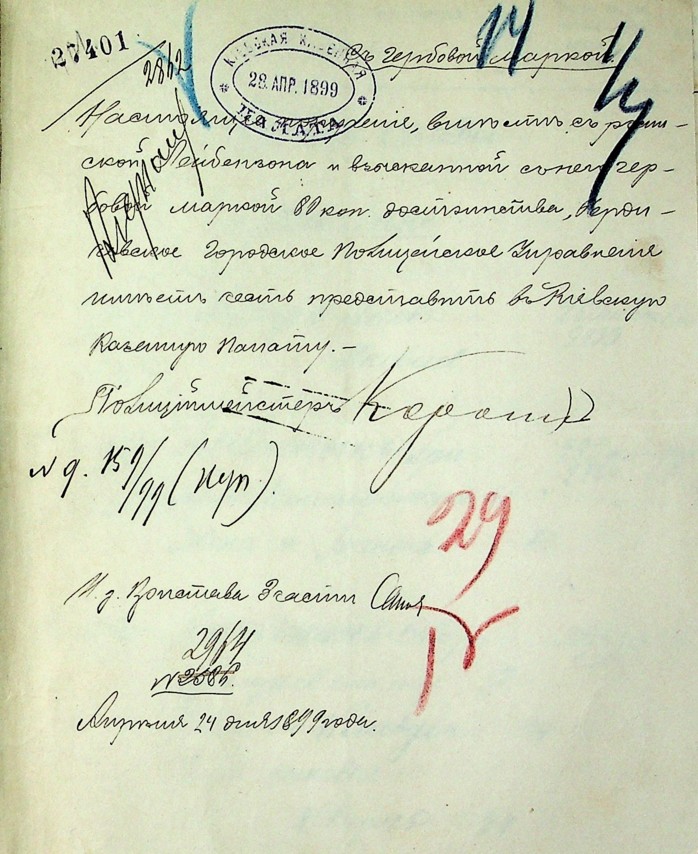 27401
2812
КІЕВСКАЯ КАЗЕННАЯ
28 АПР. 1899
ПАЛАТА
Съ гербовой маркой.
Настоящее, вмѣстѣ съ роспи-
ской Лейбензона и взысканной съ него гер-
бовой маркой 80 коп. достоинства, Берди-
чевское Городское Полицейское Управленіе
имѣетъ честь представить въ Кіевскую
Казенную Палату.-
Полиціймейстеръ
N д. 159/99
И. д. Пристава 3 части
29
2964
Апрѣля 24 дня 1899 года.